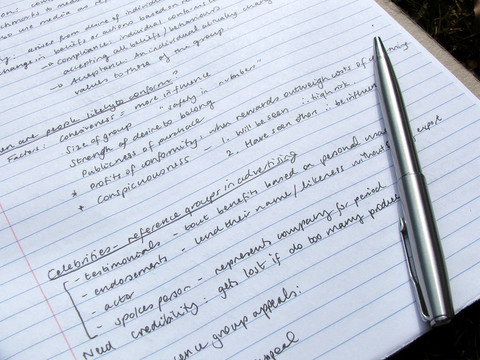 use media as
arises from desire of individual
change in beliefs or actions based on
→ compliance: individual conforms
accepting all beliefs/behaviours
→ Acceptance: An individual actually chang
values to those of the group
when are people likely to conform?
Factors: Cohesiveness = more influence
Size of group "safety in numbers"
Strength of desire to belong
Publicness of purchase
* Profits of conformity: when rewards outweigh costs of
* Conspicuousness - 1. will be seen : high risk
2. Have seen other : be influen
Celebrities - reference groups in advertising
- testimonials - tout benefits based on personal
- endorsements - lend their name/likeness without expert
- actor
- spokesperson - represents company for period
Need credibility: gets lost if do too many produc
ence group appeals:
appeal